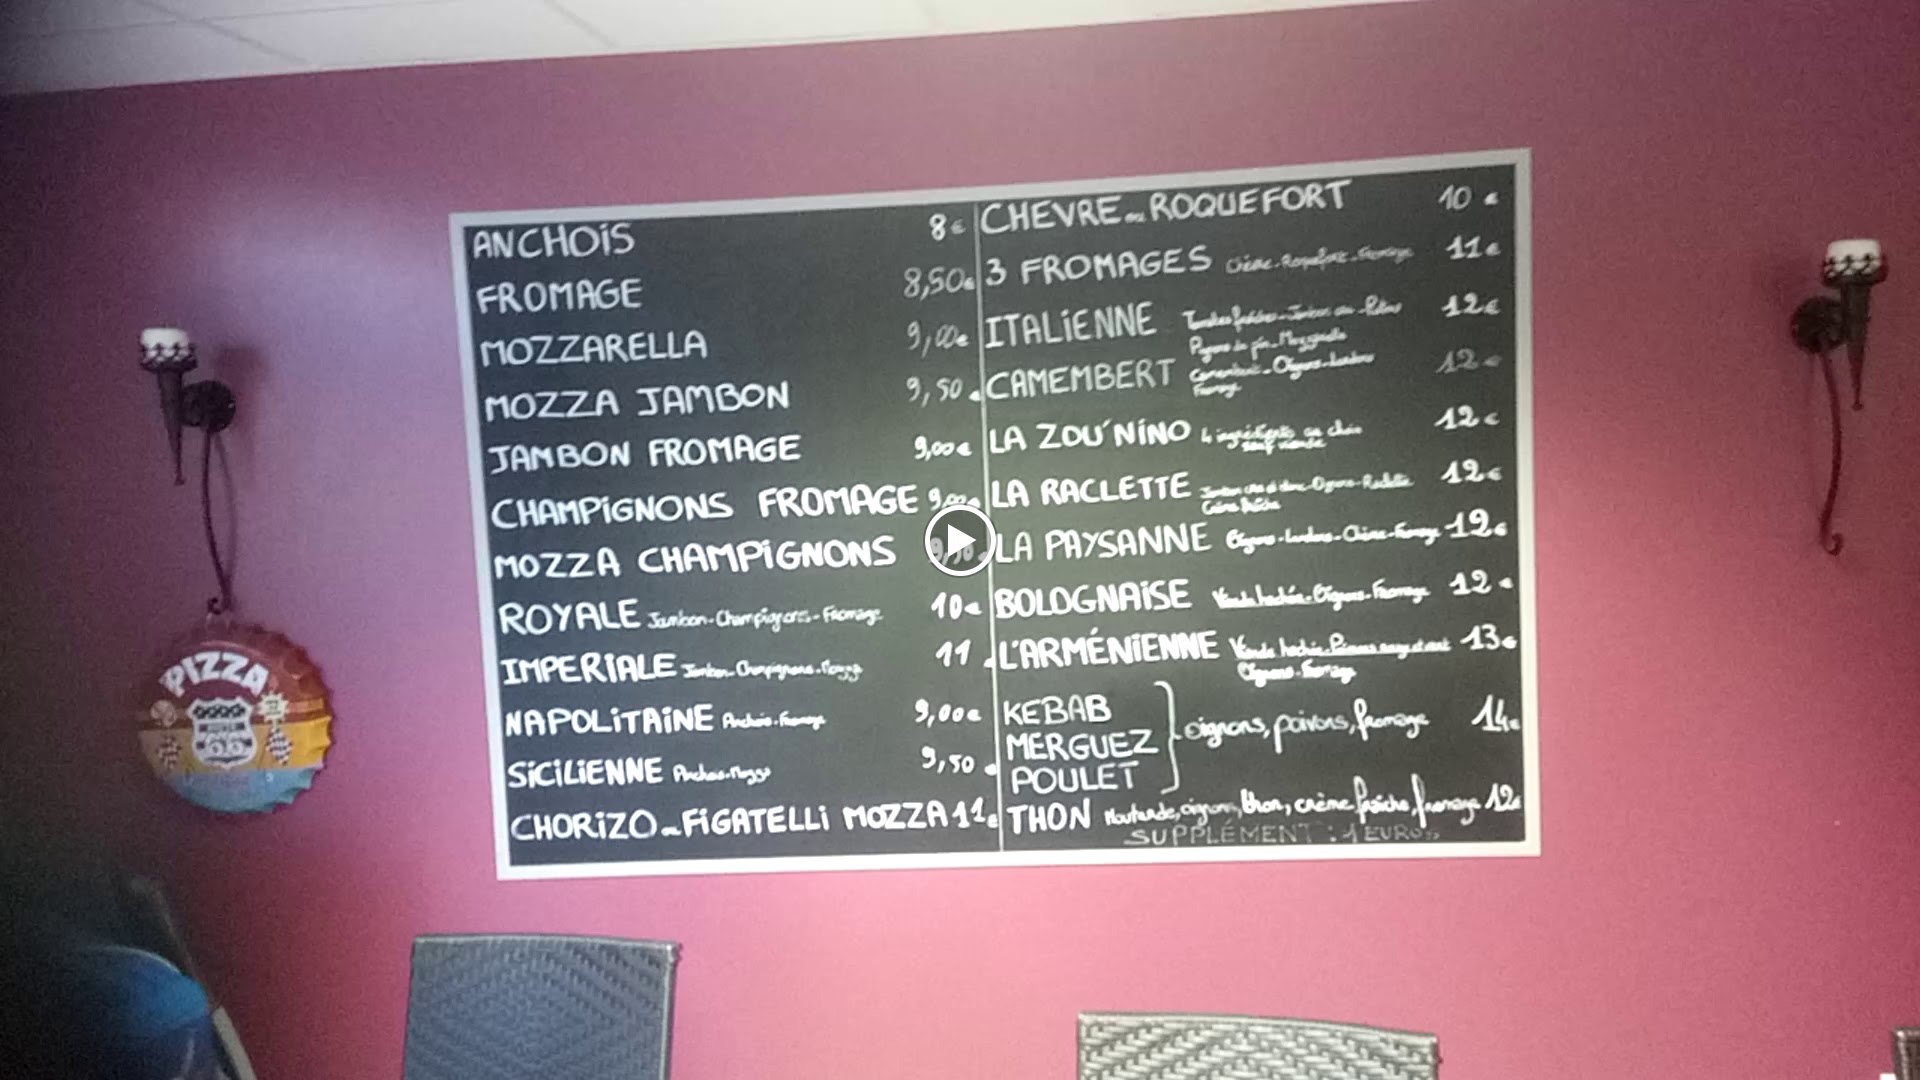 ANCHOIS 8€
FROMAGE 8,50€
MOZZARELLA 9,00€
MOZZA JAMBON 9,50€
JAMBON FROMAGE 9,00€
CHAMPIGNONS FROMAGE 9,00€
MOZZA CHAMPIGNONS
ROYALE Jambon-Champignons-Fromage 10€
IMPERIALE Jambon-Champignons-Mozza 11€
NAPOLITAINE Anchois-Fromage 9,00€
SICILIENNE Anchois-Mozza 9,50€
CHORIZO ou FIGATELLI MOZZA 11€
CHEVRE ou ROQUEFORT 10€
3 FROMAGES Chèvre-Roquefort-Fromage 11€
ITALIENNE Tomates fraîches-Jambon 12€
Pignons de pin-Mozzarella
CAMEMBERT Camembert-Oignons-Lardons 12€
Fromage
LA ZOU'NINO 4 ingrédients au choix 12€
sauf viande
LA RACLETTE Jambon cru et blanc-Oignons-Raclette 12€
Crème fraîche
LA PAYSANNE Oignons-Lardons-Chèvre-Fromage 12€
BOLOGNAISE Viande hachée-Oignons-Fromage 12€
L'ARMÉNIENNE Viande hachée-Poivrons 13€
Oignons-Fromage
KEBAB
MERGUEZ oignons, poivrons, fromage 14€
POULET
THON Moutarde, oignons, thon, crème fraîche, fromage 12€
SUPPLÉMENT : 1 EUROS
PIZZA